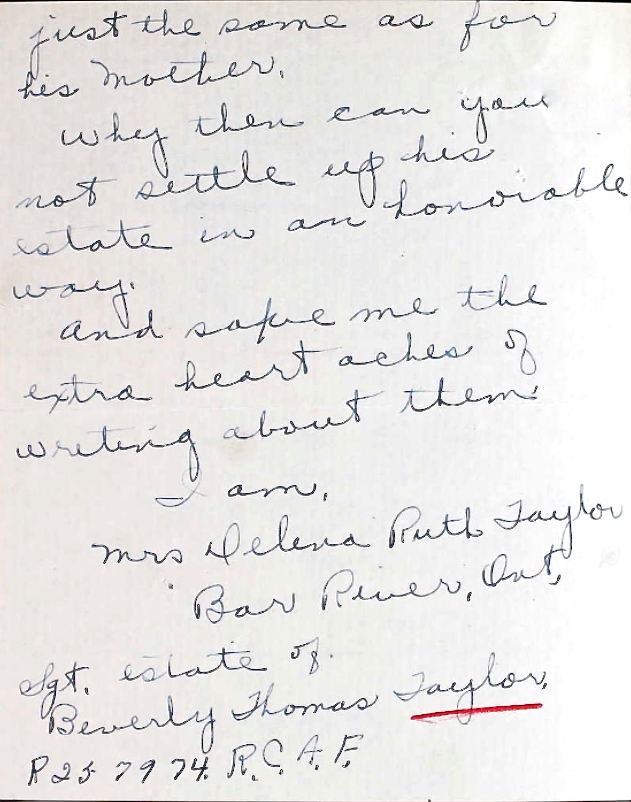 just the same as for
his Mother.
Why then can you
not settle up his
estate in an honorable
way.
And save me the
extra heart aches of
writing about them
I am,
Mrs Delena Ruth Taylor
Bar River, Ont,
Sgt. estate of.
Beverly Thomas Taylor.
R 257974. R.C.A.F.